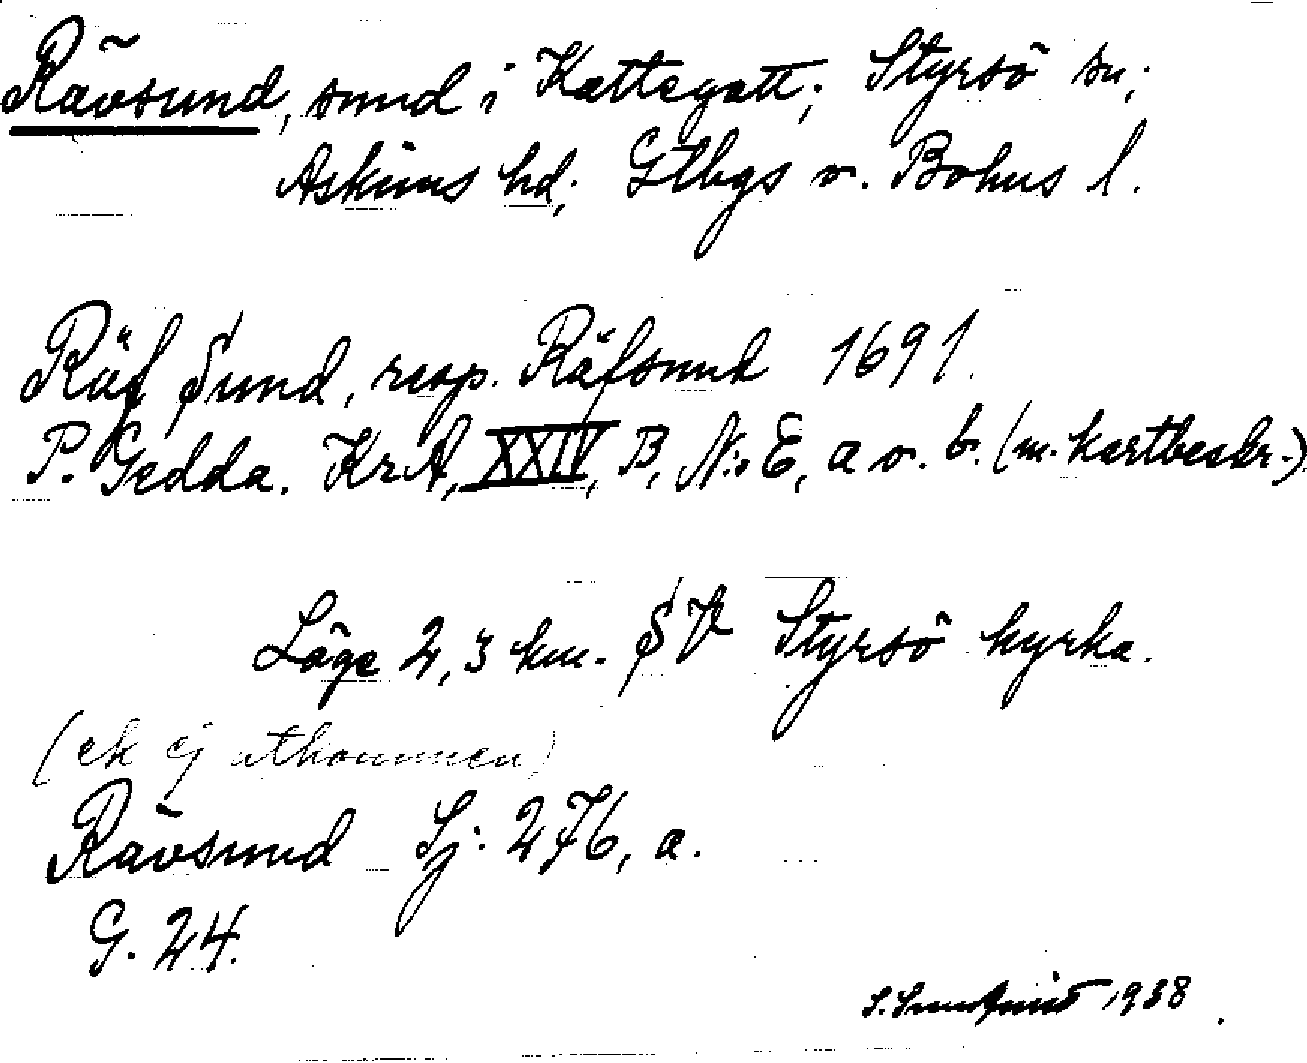 Rävsund, sund i Kattegatt; Styrsö sn;
Askims hd; Gtbgs o. Bohus l.
Räf Sund, resp. Räfsund 1691.
P. Gedda. KrA, XXIV, B, N:o E, a o. b. (m. kartbeskr.)
Läge 2,3 km. SV Styrsö kyrka.
(ek ej utkommen)
Rävsund Sj. 276, a.
G. 24.
S. Sundqvist 1938.